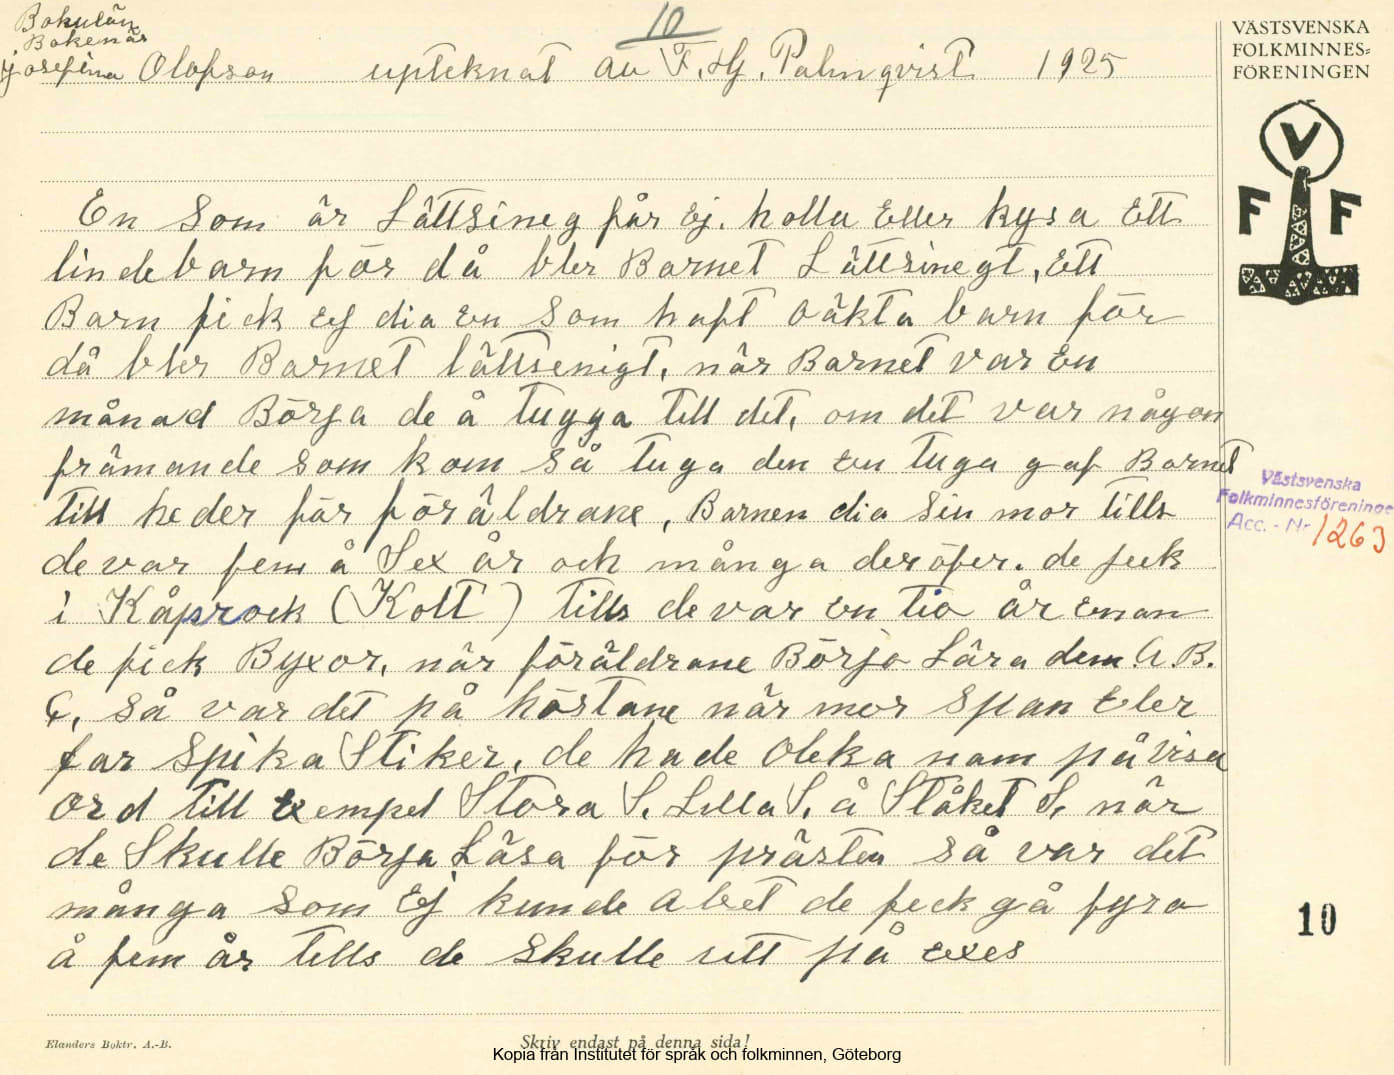 10
Bohuslän
Bokenäs
Josefina Olofson upteknat au F. Hj. Palmqvist 1925
VÄSTSVENSKA
FOLKMINNES-
FÖRENINGEN
V
F F
En som är Lättsineg får Ej. holla Eller kysa Ett
lindebarn för då bler Barnet Lättsinegt, Ett
Barn fick Ej dia En som haft oäkta barn för
då bler Barnet lättsenigt, när Barnet var En
månad Börja de å tugga till det, om det var någon
främande som kom så tuga den En tuga gaf Barnet
till heder för föräldrane, Barnen dia sin mor tills
de var fem å Sex år ock många deröfer. de feck
i Kåprock (Kolt) tills de var En tio år Enan
de fick Byxor, när föräldrane Börjo Lära dem A.B.
C, så var det på höstane när mor span Eler
far Spika Stiker, de hade Oleka nam på visa
ord till Exempel Stora S. Lilla S. å Ståket S. när
de Skulle Börja Läsa för prästen så var det
många som Ej kunde Abet de feck gå fyra
å fem år tells de skulle sitt på exes
Västsvenska
Folkminnesföreningen
Acc. - Nr 1263
10
Elanders Boktr. A.-B.
Skriv endast på denna sida!
Kopia från Institutet för språk och folkminnen, Göteborg